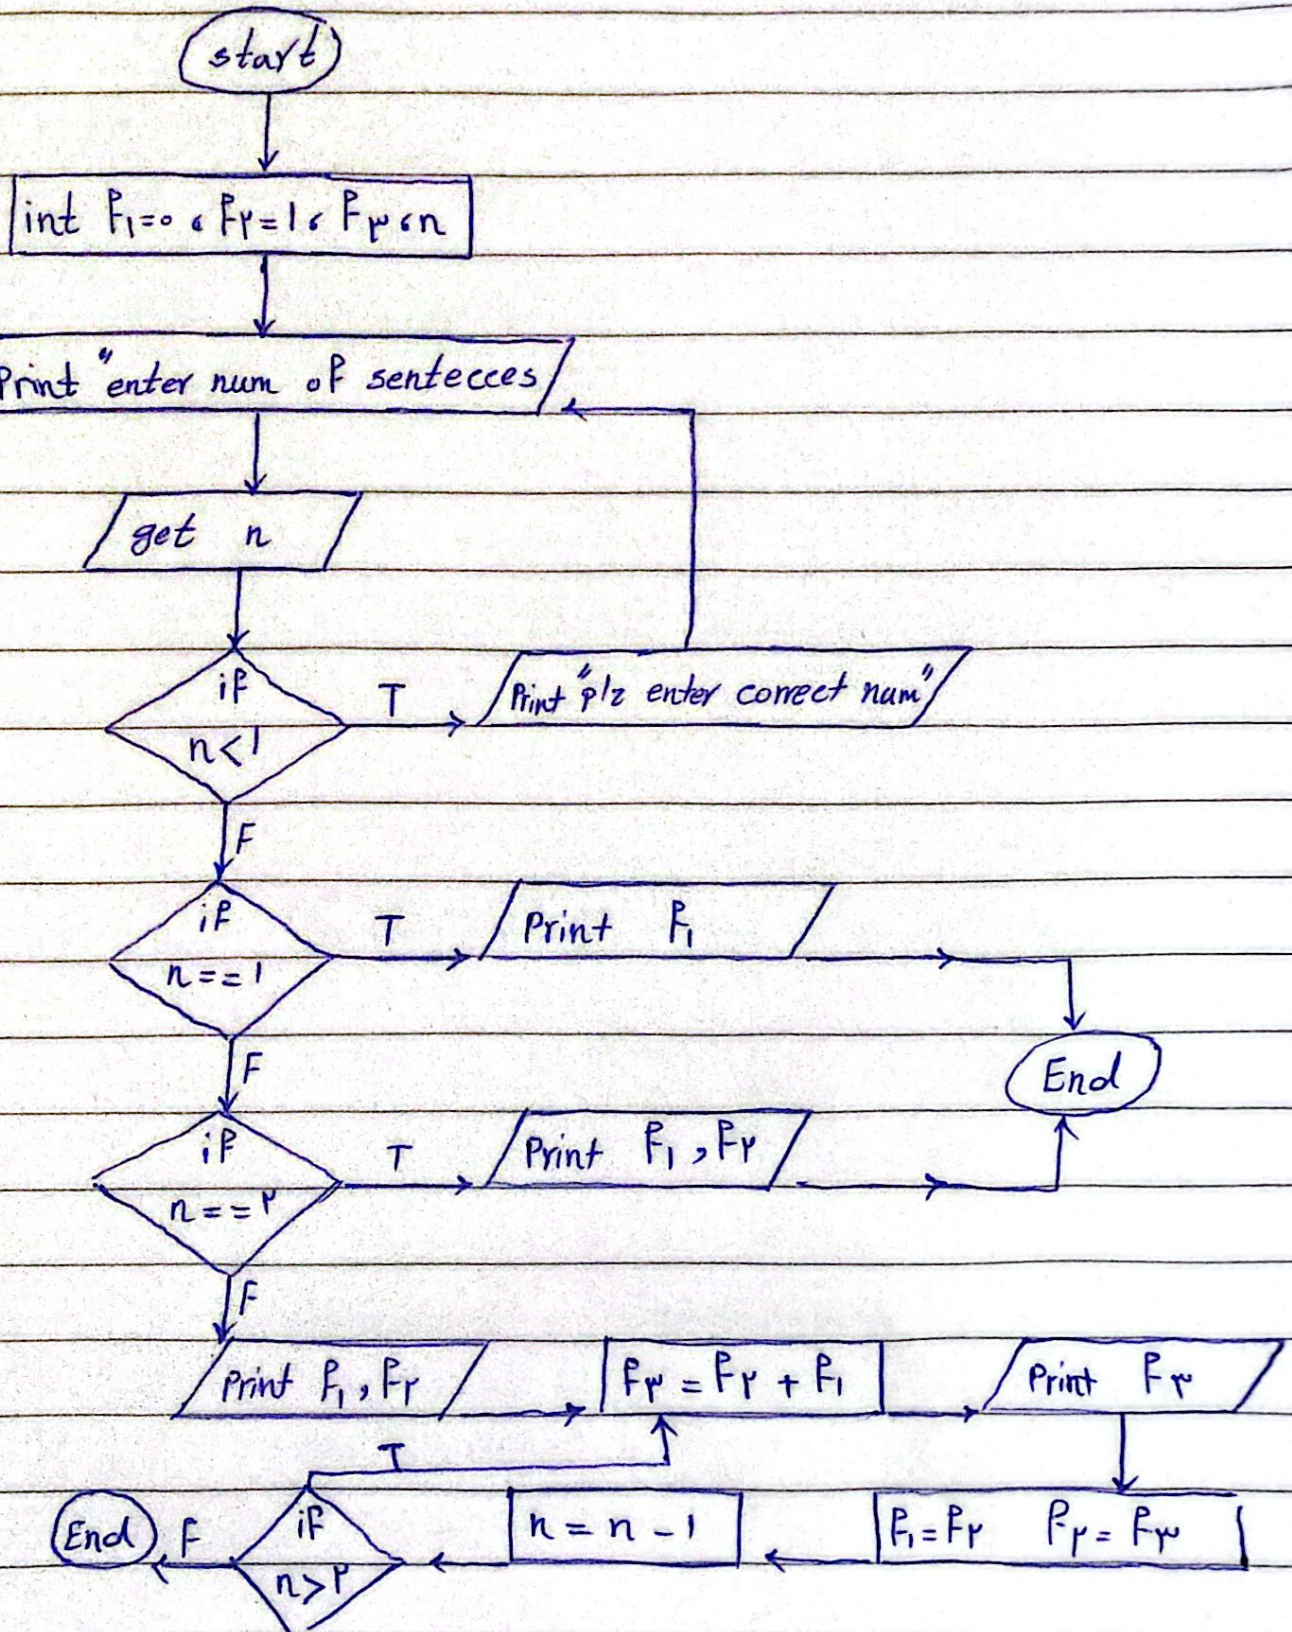 start
int F۱=۰ ، F۲=۱ ، F۳ ، n
Print "enter num of sentecces
get n
if
n<۱
T
Print "plz enter correct num"
F
if
n==۱
T
Print F۱
F
End
if
n==۲
T
Print F۱ , F۲
F
Print F۱ , F۲
F۳ = F۲ + F۱
Print F۳
T
End
F
if
n>۲
n = n - ۱
F۱=F۲ F۲=F۳